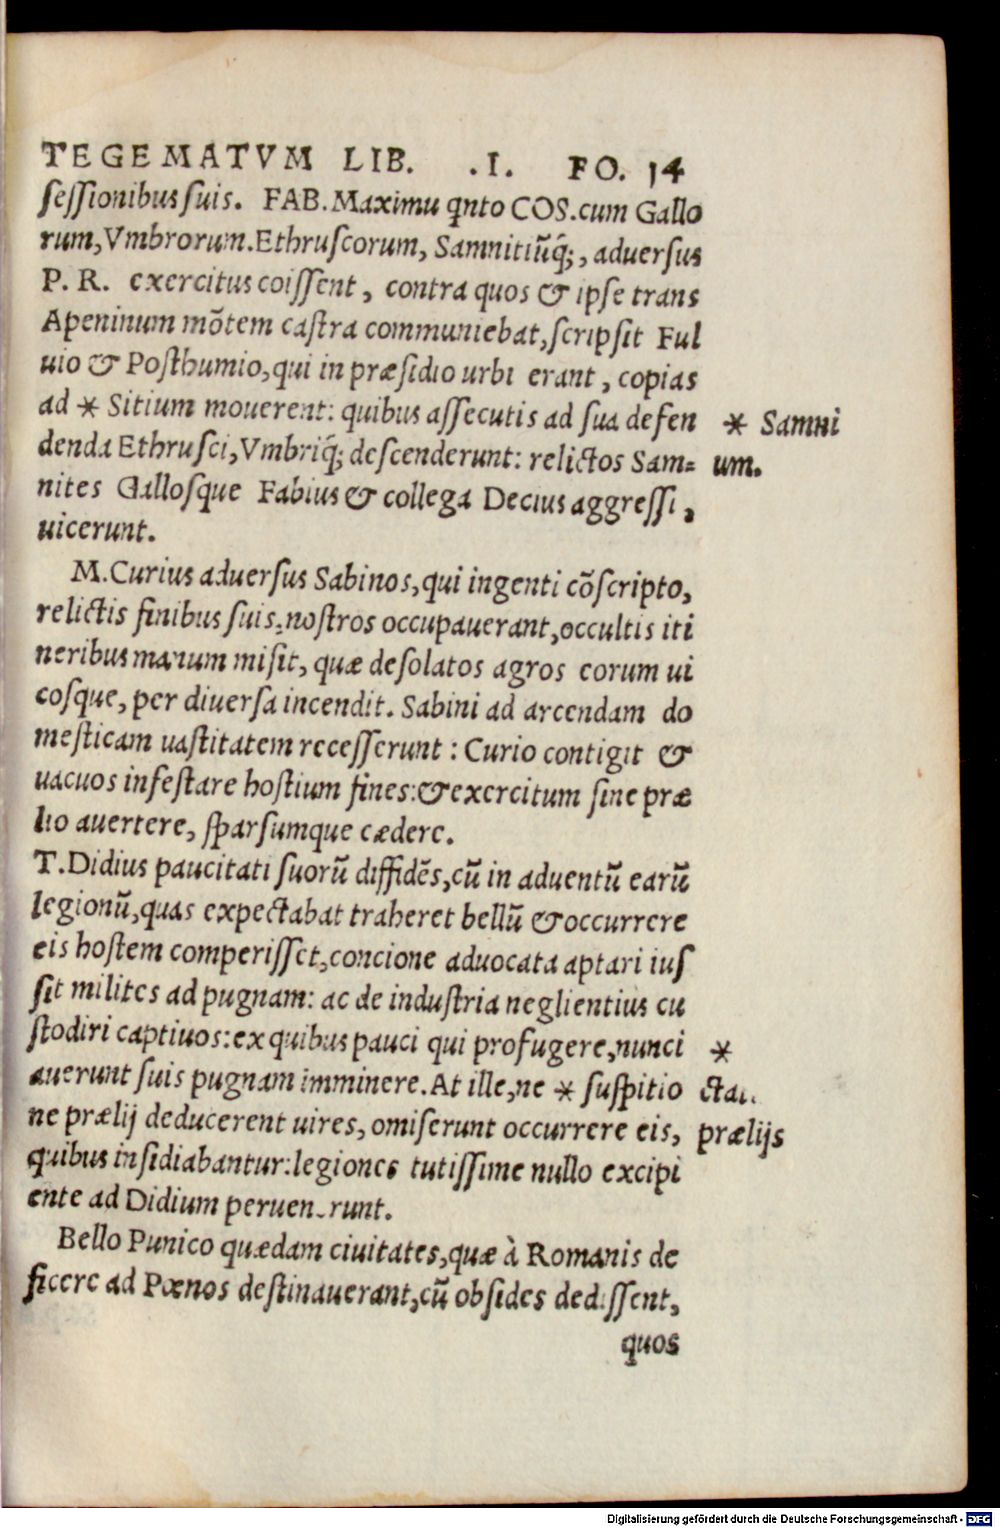 TEGEMATVM LIB. .I. FO. 14
seſſionibus suis. FAB. Maximu qnto COS. cum Gallo
rum, Vmbrorum. Ethruſcorum, Samnitiũq́;, aduerſus
P. R. exercitus coiſſent, contra quos & ipſe trans
Apeninum mõtem caſtra communiebat, ſcripſit Ful
uio & Poſthumio, qui in præſidio urbi erant, copias
ad * Sitium mouerent: quibus aſſecutis ad ſua defen
denda Ethruſci, Vmbriq́; deſcenderunt: relictos Sam=
nites Galloſque Fabius & collega Decius aggreſſi,
uicerunt.
* Samni
um.
M. Curius aduerſus Sabinos, qui ingenti cõſcripto,
relictis finibus ſuis, noſtros occupauerant, occultis iti
neribus manum miſit, quæ deſolatos agros eorum ui
coſque, per diuerſa incendit. Sabini ad arcendam do
meſticam uaſtitatem receſſerunt: Curio contigit &
uacuos infeſtare hoſtium fines: & exercitum ſine præ
lio auertere, ſparſumque cædere.
T. Didius paucitati ſuorũ diffidẽs, cũ in aduentũ earũ
legionũ, quas expectabat traheret bellũ & occurrere
eis hoſtem comperiſſet, concione aduocata aptari iuſ
ſit milites ad pugnam: ac de induſtria neglientius cu
ſtodiri captiuos: ex quibus pauci qui profugere, nunci
auerunt ſuis pugnam imminere. At ille, ne * ſuſpitio
ne prælij deducerent uires, omiſerunt occurrere eis,
quibus inſidiabantur: legiones tutiſſime nullo excipi
ente ad Didium peruen runt.
*
prælijs
Bello Punico quædam ciuitates, quæ à Romanis de
ficere ad Pœnos deſtinauerant, cũ obſides dediſſent,
quos
Digitalisierung gefördert durch die Deutsche Forschungsgemeinschaft - DFG